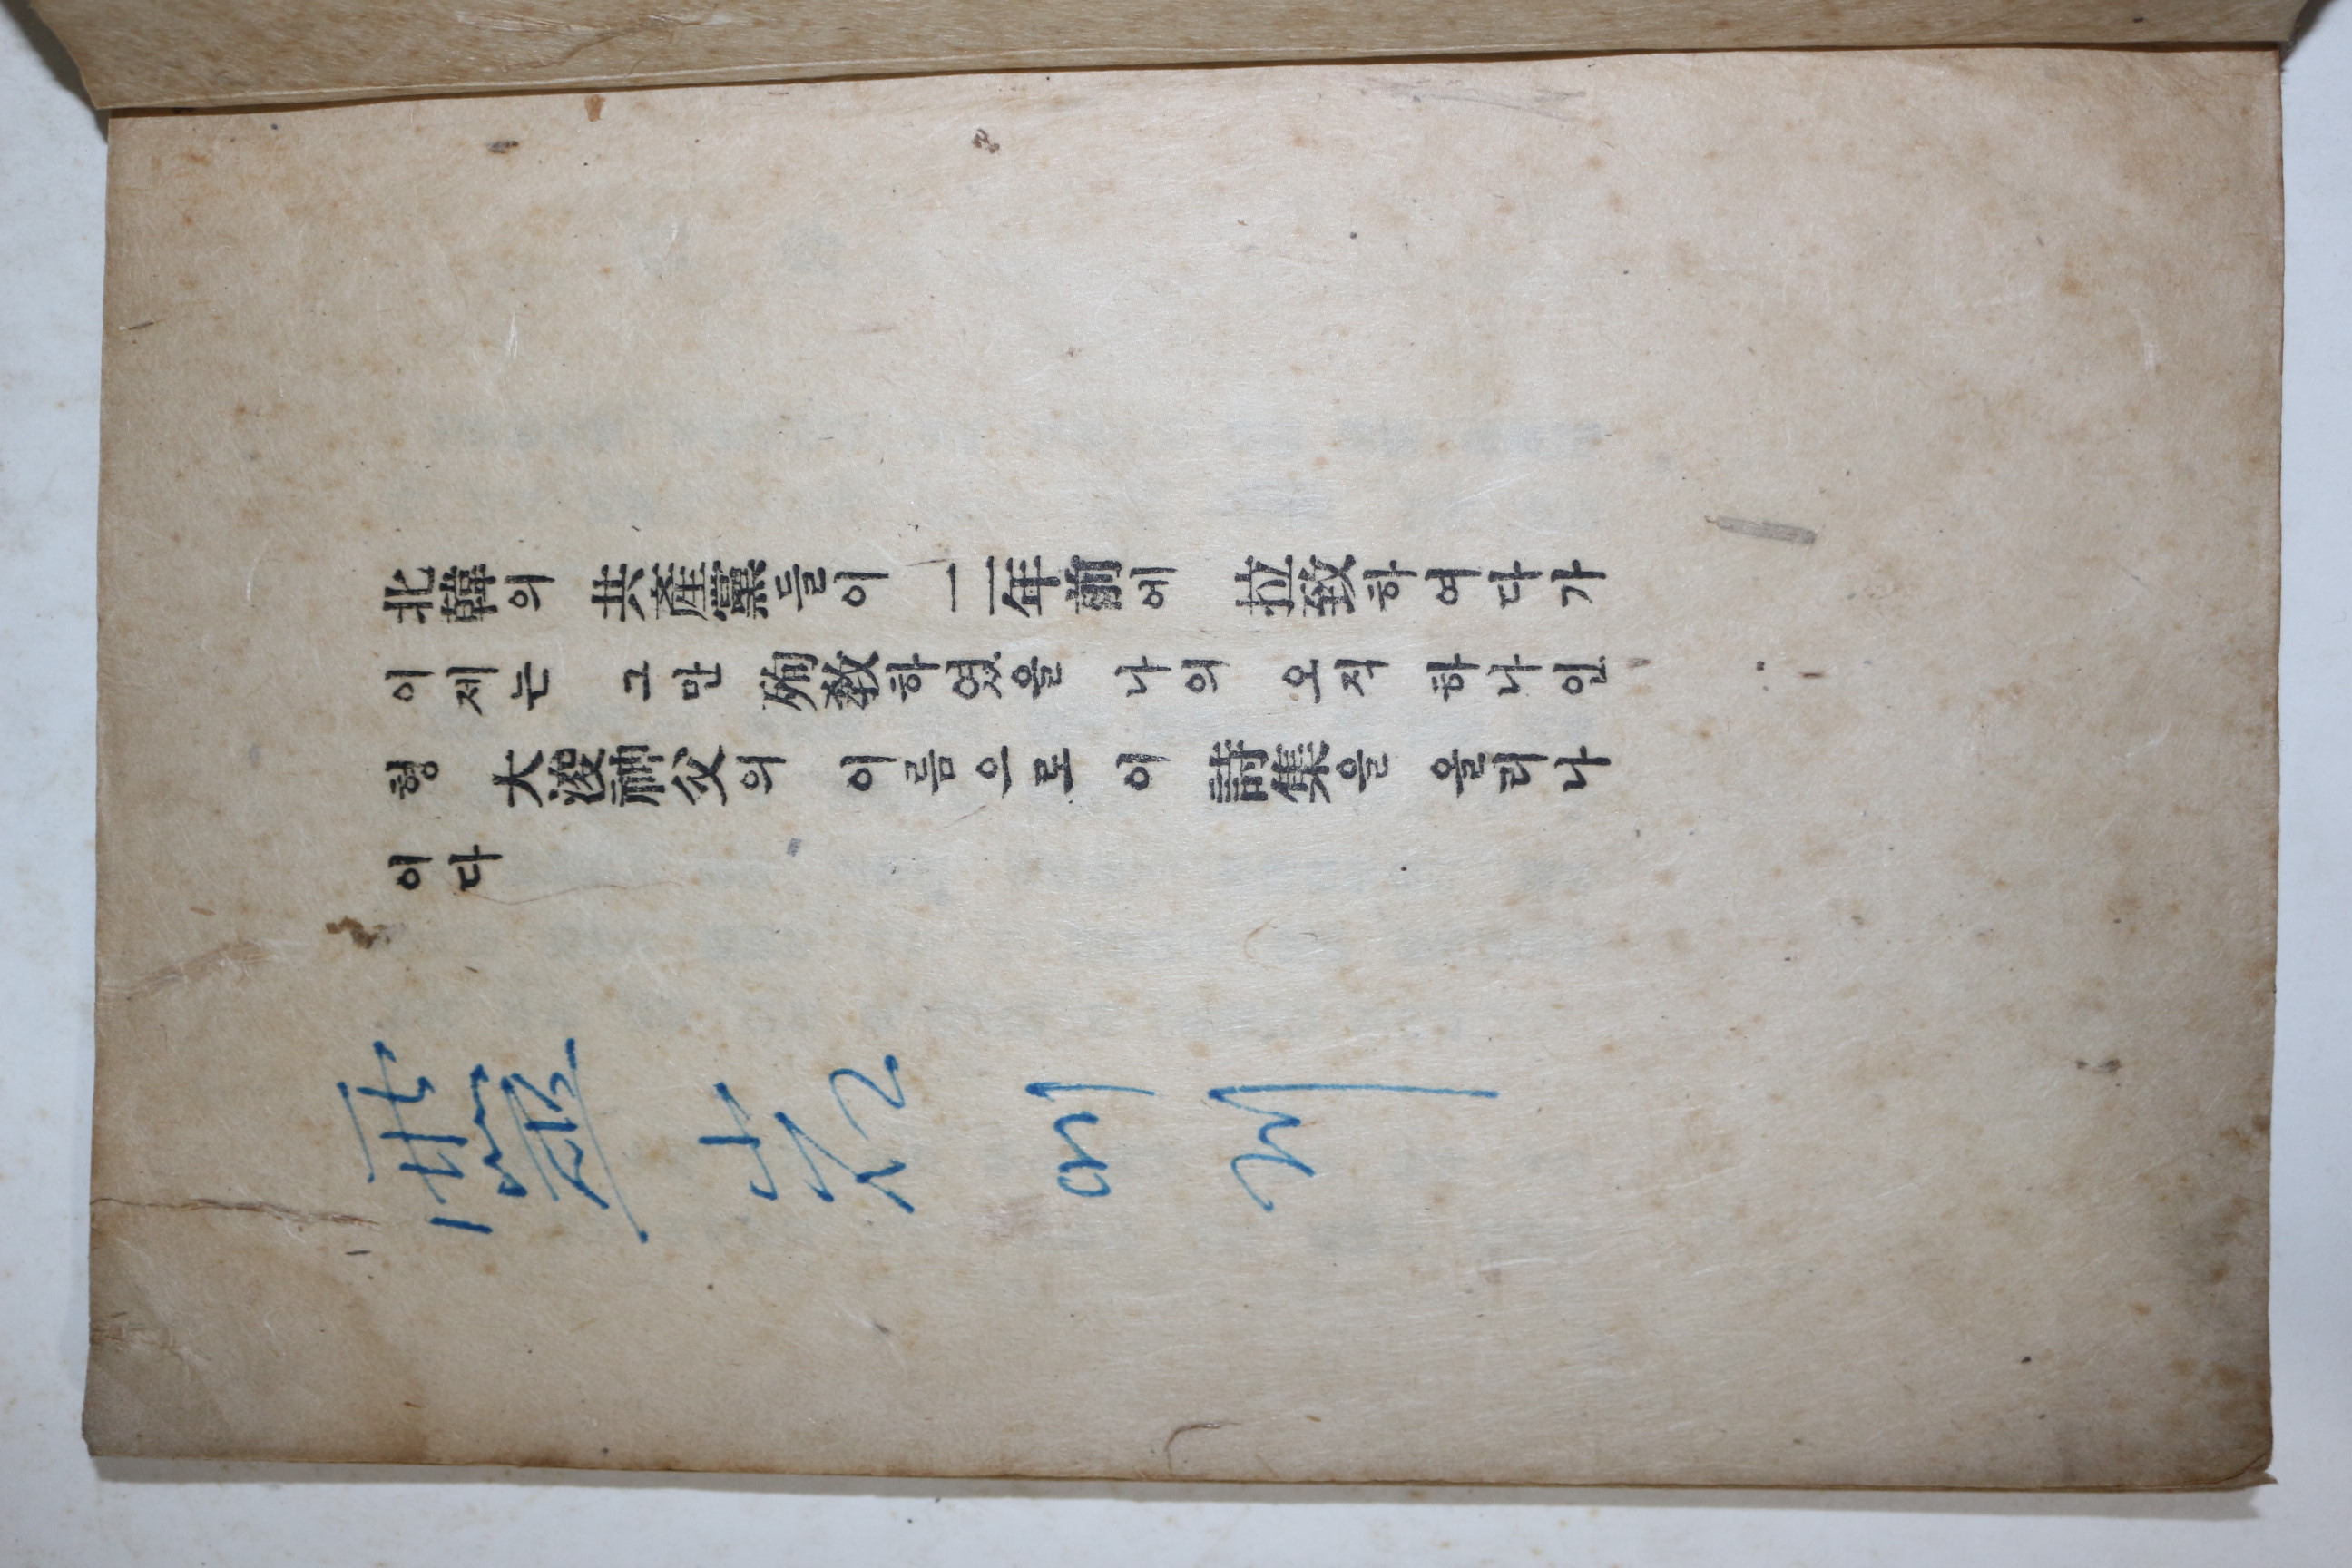 北韓의 共產黨들이 二年前에 拉致하여다가
이제는 그만 殉敎하였을 나의 오직 하나인
형 大浚神父의 이름으로 이 詩集을 올리나
이다
靈岩에게